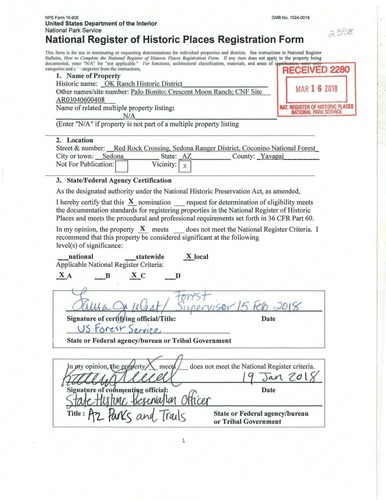 NPS Form 10-900
OMB No. 1024-0018
United States Department of the Interior
National Park Service
National Register of Historic Places Registration Form
This form is for use in nominating or requesting determinations for individual properties and districts. See instructions in National Register
Bulletin, How to Complete the National Register of Historic Places Registration Form. If any item does not apply to the property being
documented, enter "N/A" for "not applicable." For functions, architectural classification, materials, and areas of significance, enter only
categories and subcategories from the instructions.
RECEIVED 2280
MAR 16 2018
NAT. REGISTER OF HISTORIC PLACES
NATIONAL PARK SERVICE
1. Name of Property
Historic name: OK Ranch Historic District
Other names/site number: Palo Bonito; Crescent Moon Ranch; CNF Site
AR03040600408
Name of related multiple property listing:
N/A
(Enter "N/A" if property is not part of a multiple property listing
2. Location
Street & number: Red Rock Crossing, Sedona Ranger District, Coconino National Forest
City or town: Sedona State: AZ County: Yavapai
Not For Publication: Vicinity: x
3. State/Federal Agency Certification
As the designated authority under the National Historic Preservation Act, as amended,
I hereby certify that this X nomination request for determination of eligibility meets
the documentation standards for registering properties in the National Register of Historic
Places and meets the procedural and professional requirements set forth in 36 CFR Part 60.
In my opinion, the property X meets does not meet the National Register Criteria. I
recommend that this property be considered significant at the following
level(s) of significance:
national statewide X local
Applicable National Register Criteria:
X A B X C D
Forest
Supervisor 15 Feb 2018
Signature of certifying official/Title: Date
US Forest Service
State or Federal agency/bureau or Tribal Government
In my opinion, the property X meets does not meet the National Register criteria.
19 Jan 2018
Signature of commenting official: Date
State Historic Preservation Officer
Title : AZ Parks and Trails State or Federal agency/bureau
or Tribal Government
1